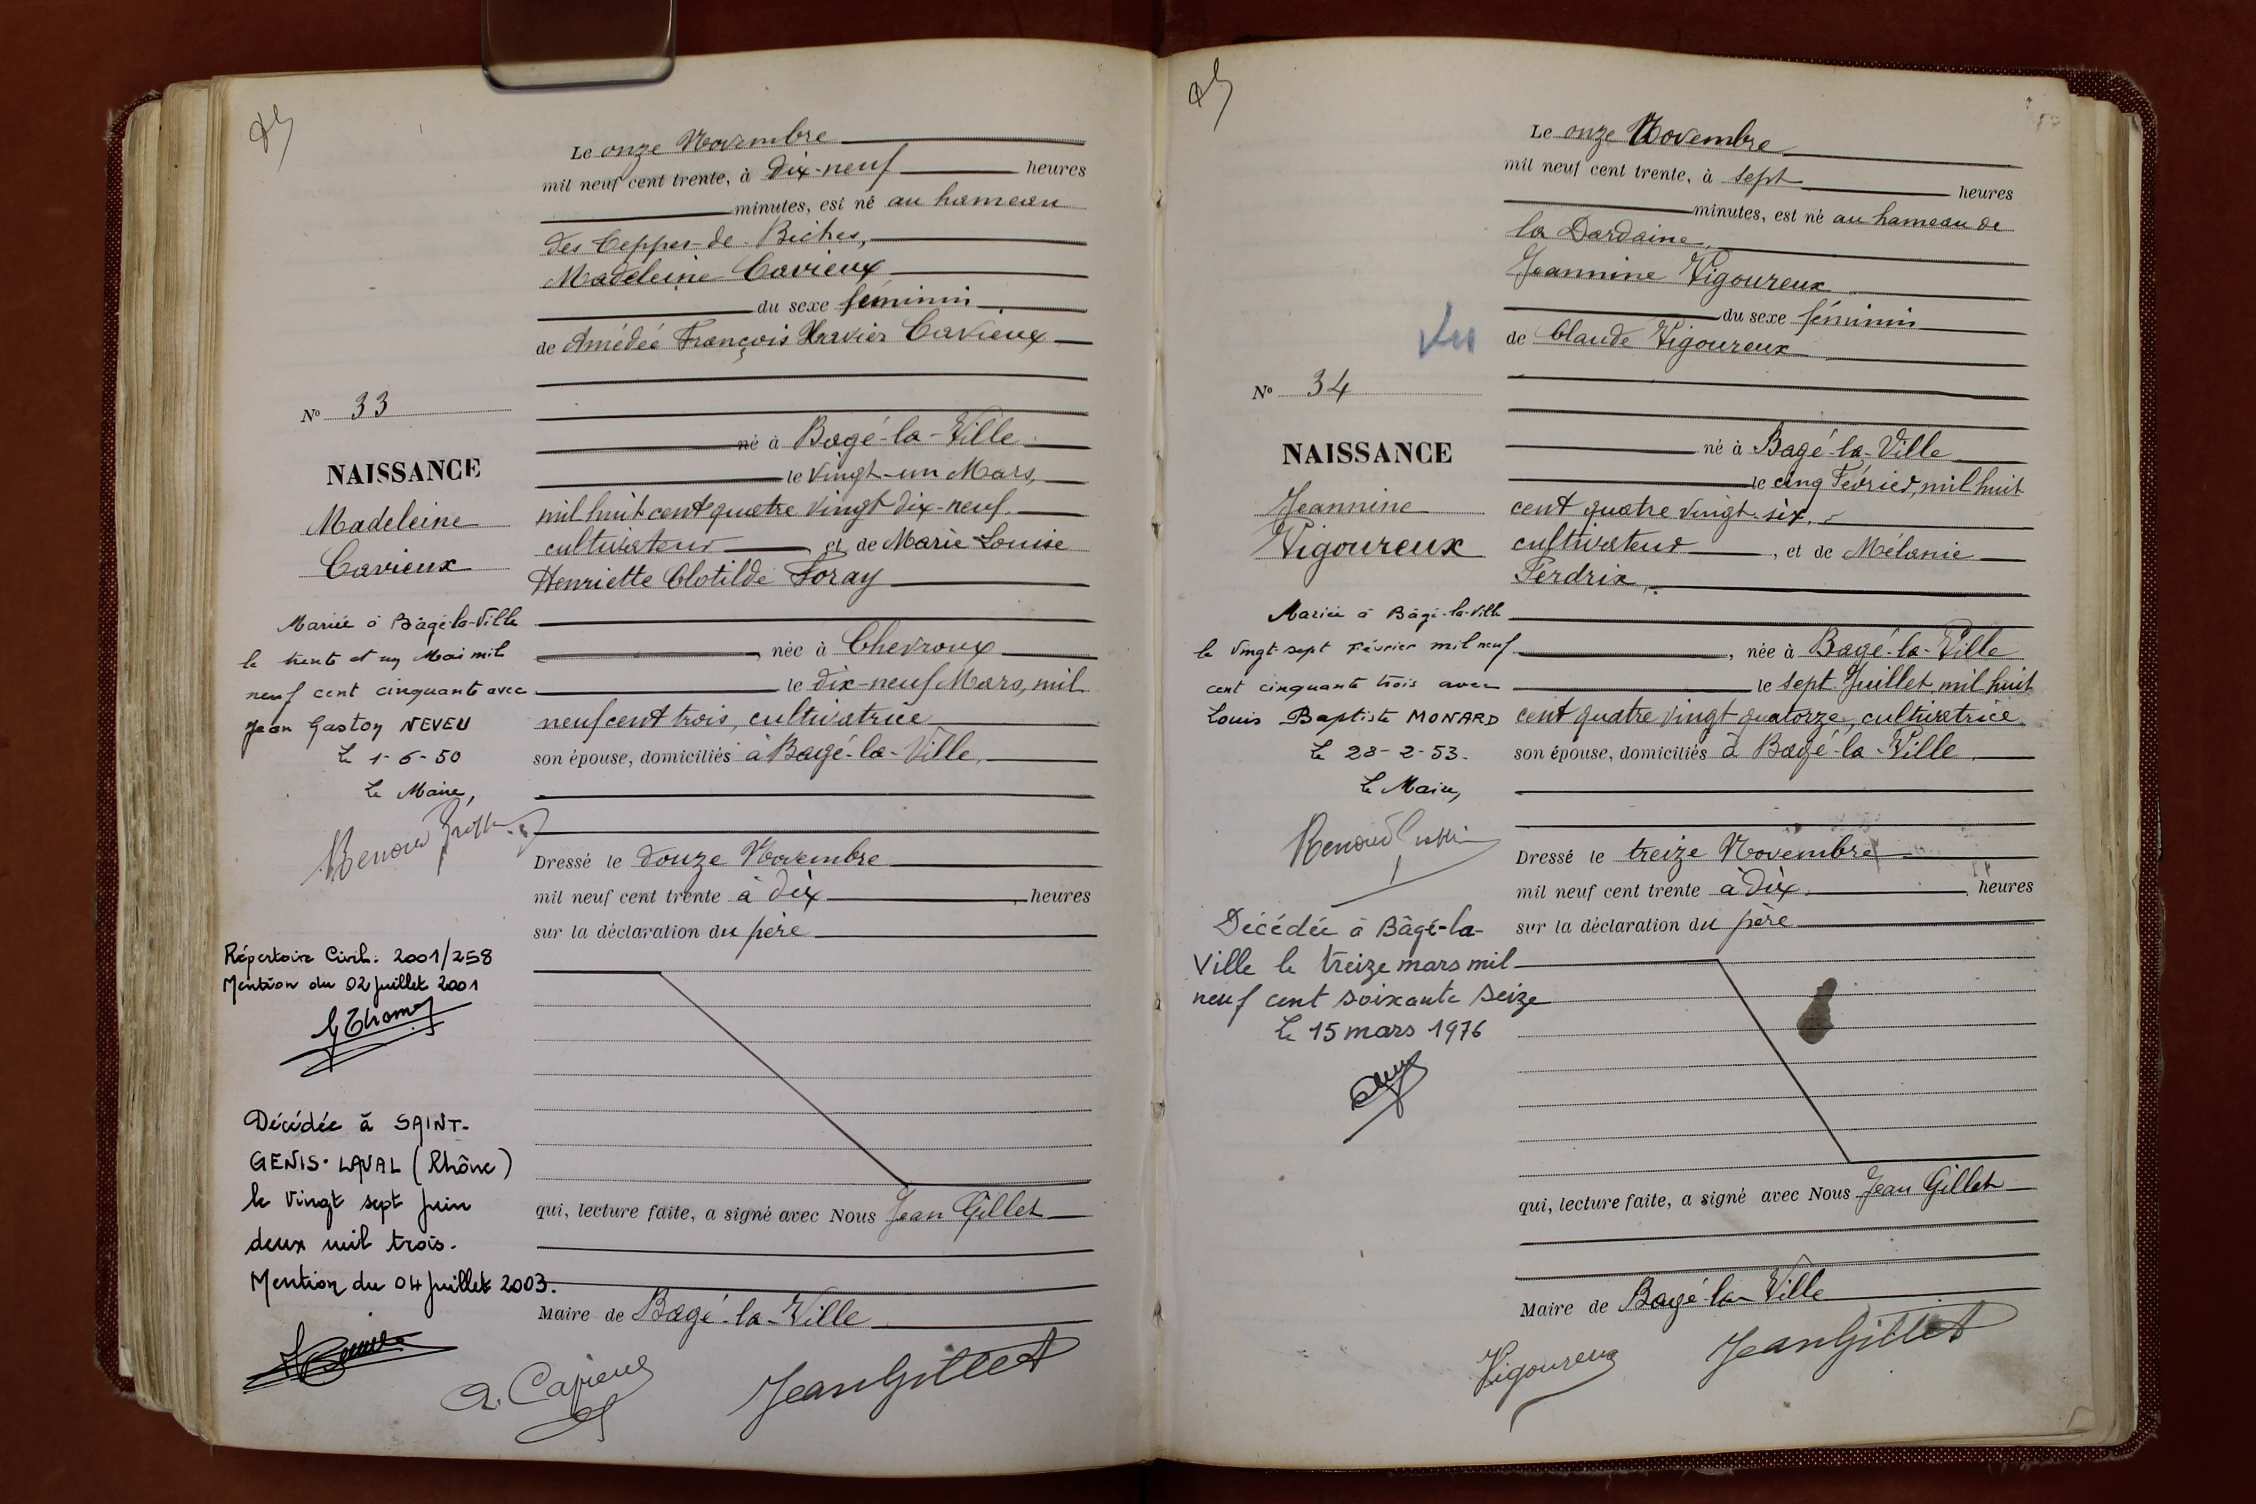 Le onze Novembre
mil neuf cent trente, à dix-neuf heures
minutes, est né au hameau
des Teppes-de-Biches,
Madeleine Cavieux
du sexe féminin
de Amédée François Xavier Cavieux
né à Bagé-la-Ville
le vingt-un Mars,
mil huit cent quatre vingt dix-neuf.
cultivateur et de Marie Louise
Henriette Clotilde Foray
née à Chevroux
le dix-neuf Mars, mil
neuf cent trois, cultivatrice
son épouse, domiciliés à Bagé-la-Ville,
Dressé le douze Novembre
mil neuf cent trente à dix heures
sur la déclaration du père
qui, lecture faite, a signé avec Nous Jean Gillet
Maire de Bagé-la-Ville
A. Cavieux
Jean Gillet
No 33
NAISSANCE
Madeleine
Cavieux
Mariée à Bâgé-la-Ville
le trente et un Mai mil
neuf cent cinquante avec
Jean Gaston NEVEU
Le 1-6-50
Le Maire,
Répertoire Civil. 2001/258
Mention du 02 juillet 2001
Décédée à SAINT-
GENIS-LAVAL (Rhône)
le vingt sept juin
deux mil trois.
Mention du 04 juillet 2003.
Le onze Novembre
mil neuf cent trente, à sept heures
minutes, est né au hameau de
la Dardaine,
Jeannine Vigoureux
du sexe féminin
de Claude Vigoureux
né à Bagé-la-Ville
le cinq Février, mil huit
cent quatre vingt-six,
cultivateur, et de Mélanie
Perdrix,
, née à Bagé-la-Ville
le sept Juillet mil huit
cent quatre vingt quatorze, cultivatrice
son épouse, domiciliés à Bagé-la-Ville.
Dressé le treize Novembre
mil neuf cent trente à dix heures
sur la déclaration du père
qui, lecture faite, a signé avec Nous Jean Gillet
Maire de Bagé-la-Ville
Vigoureux
Jean Gillet
Vu
No 34
NAISSANCE
Jeannine
Vigoureux
Mariée à Bâgé-la-Ville
le vingt sept Février mil neuf
cent cinquante trois avec
Louis Baptiste MONARD
Le 28-2-53.
Le Maire,
Décédée à Bâgé-la-
Ville le treize mars mil
neuf cent soixante seize
Le 15 mars 1976